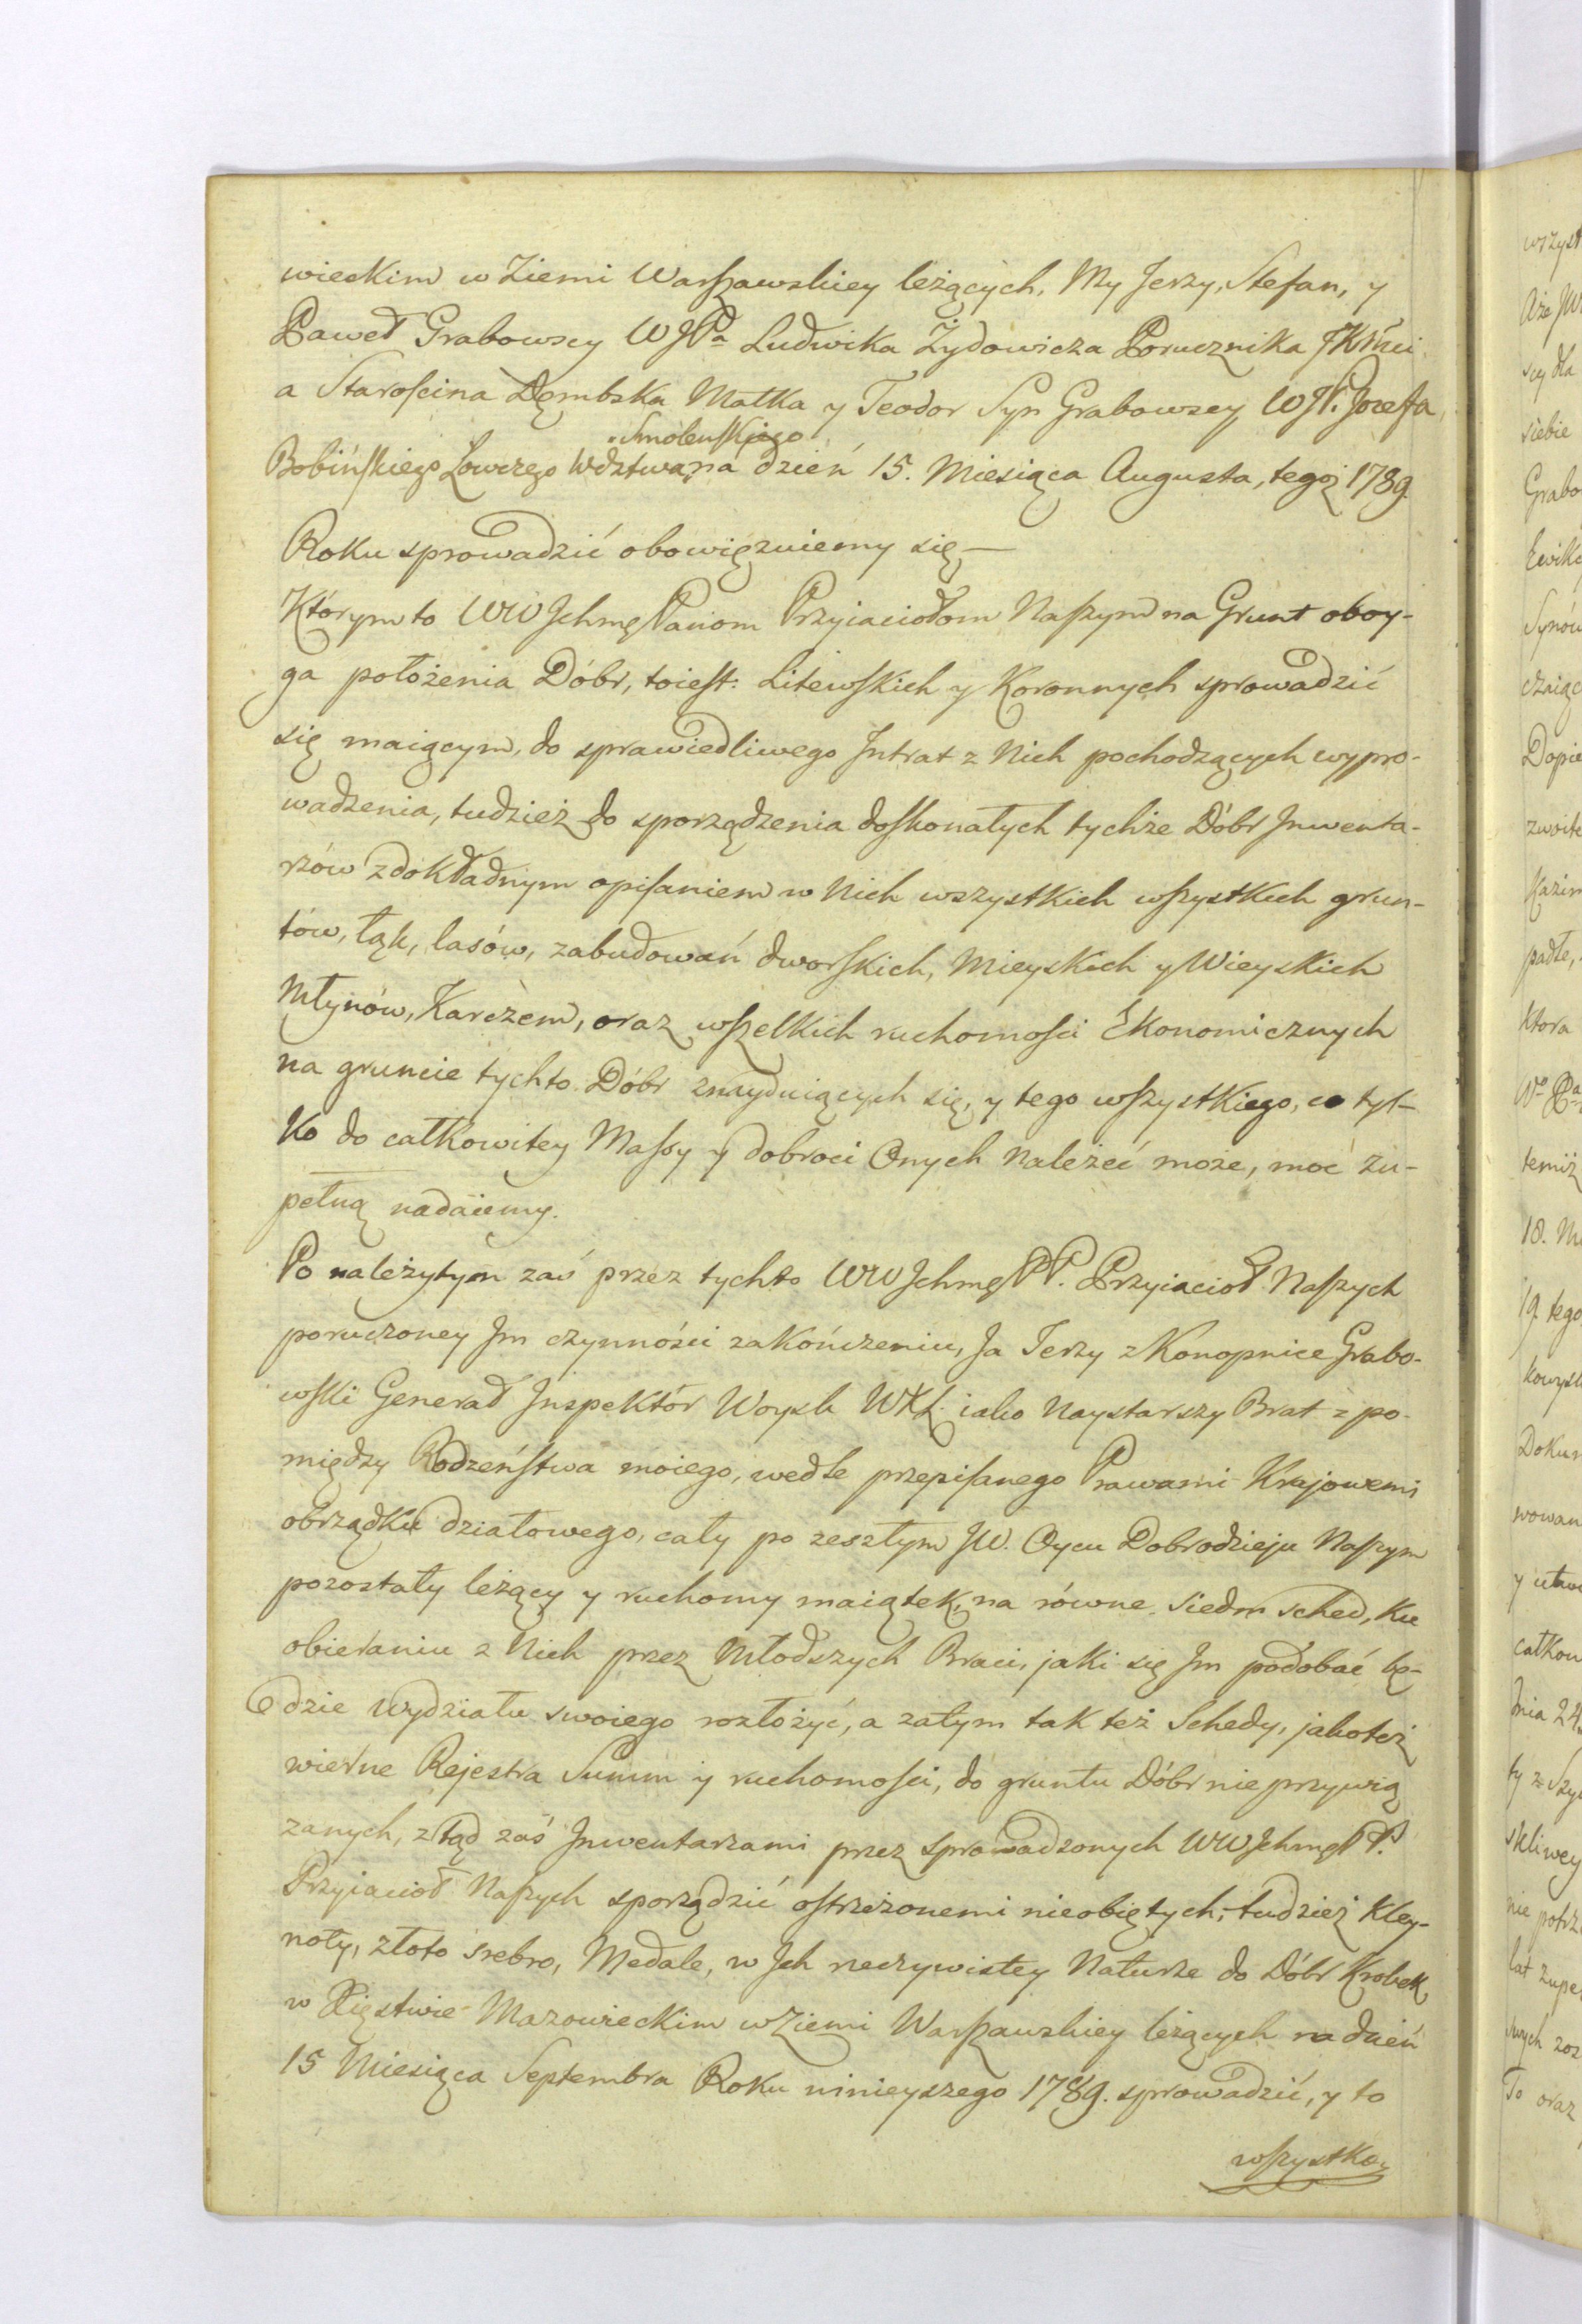 wieckim w Ziemi Warszawskiey leżących, My Jerzy, Stefan, y
Paweł Grabowscy WJPa Ludwika Żydowicza Porucznika
a Starościna Dąmbska Matka y Teodor Syn Grabowscy, WJP. Jozefa
Smolenskiego
Bobińskiego Łowczego Wdztwa na dzień 15. Miesiąca Augusta, tegoż 1789
Roku sprowadzić obowięzuiemy się —
Którym to WW Jchmę Paniom Przyiaciołom Naszym na Grunt oboy-
ga położenia Dóbr, toiest: Litewskich y Koronnych sprowadzić
się maiącym, do sprawiedliwego Jntrat z Nich pochodzących wypro-
wadzenia, tudzież do sporządzenia doskonałych tychże Dóbr Jnwenta-
rzów z dokładnym opisaniem w Nich wszystkich wszystkich grun-
tów, łąk, lasów, zabudowań dworskich, Mieyskich y Wieyskich
Młynów, Karczem, oraz wszelkich ruchomości Ekonomicznych
na gruncie tychto Dóbr znayduiących się, y tego wszystkiego, co tyl-
ko do całkowitey Massy y dobroci Onych należeć może, moc zu-
pełną nadaiemy.
Po należytym zaś przez tychto WW Jchmę PP. Przyiacioł Naszych
poruczoney Jm czynności zakończeniu, Ja Jerzy z Konopnice Grabo-
wski Generał Jnspektór Woysk WXL. iako Naystarszy Brat z po-
między Rodzeństwa moiego, wedle przepisanego Prawami Krajowemi
obrządku działowego, cały po zeszłym JW. Oycu Dobrodzieju Naszym
pozostały leżący y ruchomy maiątek, na równe siedm sched, ku
obieraniu z Nich przez Młodszych Braci, jaki się Jm podobać bę-
dzie wydziału swoiego rozłożyć, a zatym tak też Schedy, jakoteż
wierne Rejestra Summ y ruchomości, do gruntu Dóbr nie przywią
zanych, ztąd zaś Jnwentarzami przez sprowadzonych WW Jchmę PP.
Przyiacioł Naszych sporządzić ostrzeżonemi nieobiętych, tudzież Kley-
noty, złoto srebro, Medale, w Jch rzeczywistey Naturze do Dóbr Krobek
w Xięstwie Mazowieckim w Ziemi Warszawskiey leżących na dzień
15 Miesiąca Septembra Roku ninieyszego 1789. sprowadzić, y to
wszystko
wszyst
siebie
Grabo
Synów
Dopie
ktora
18. M
19. tego
Dokum
całkow
To oraz